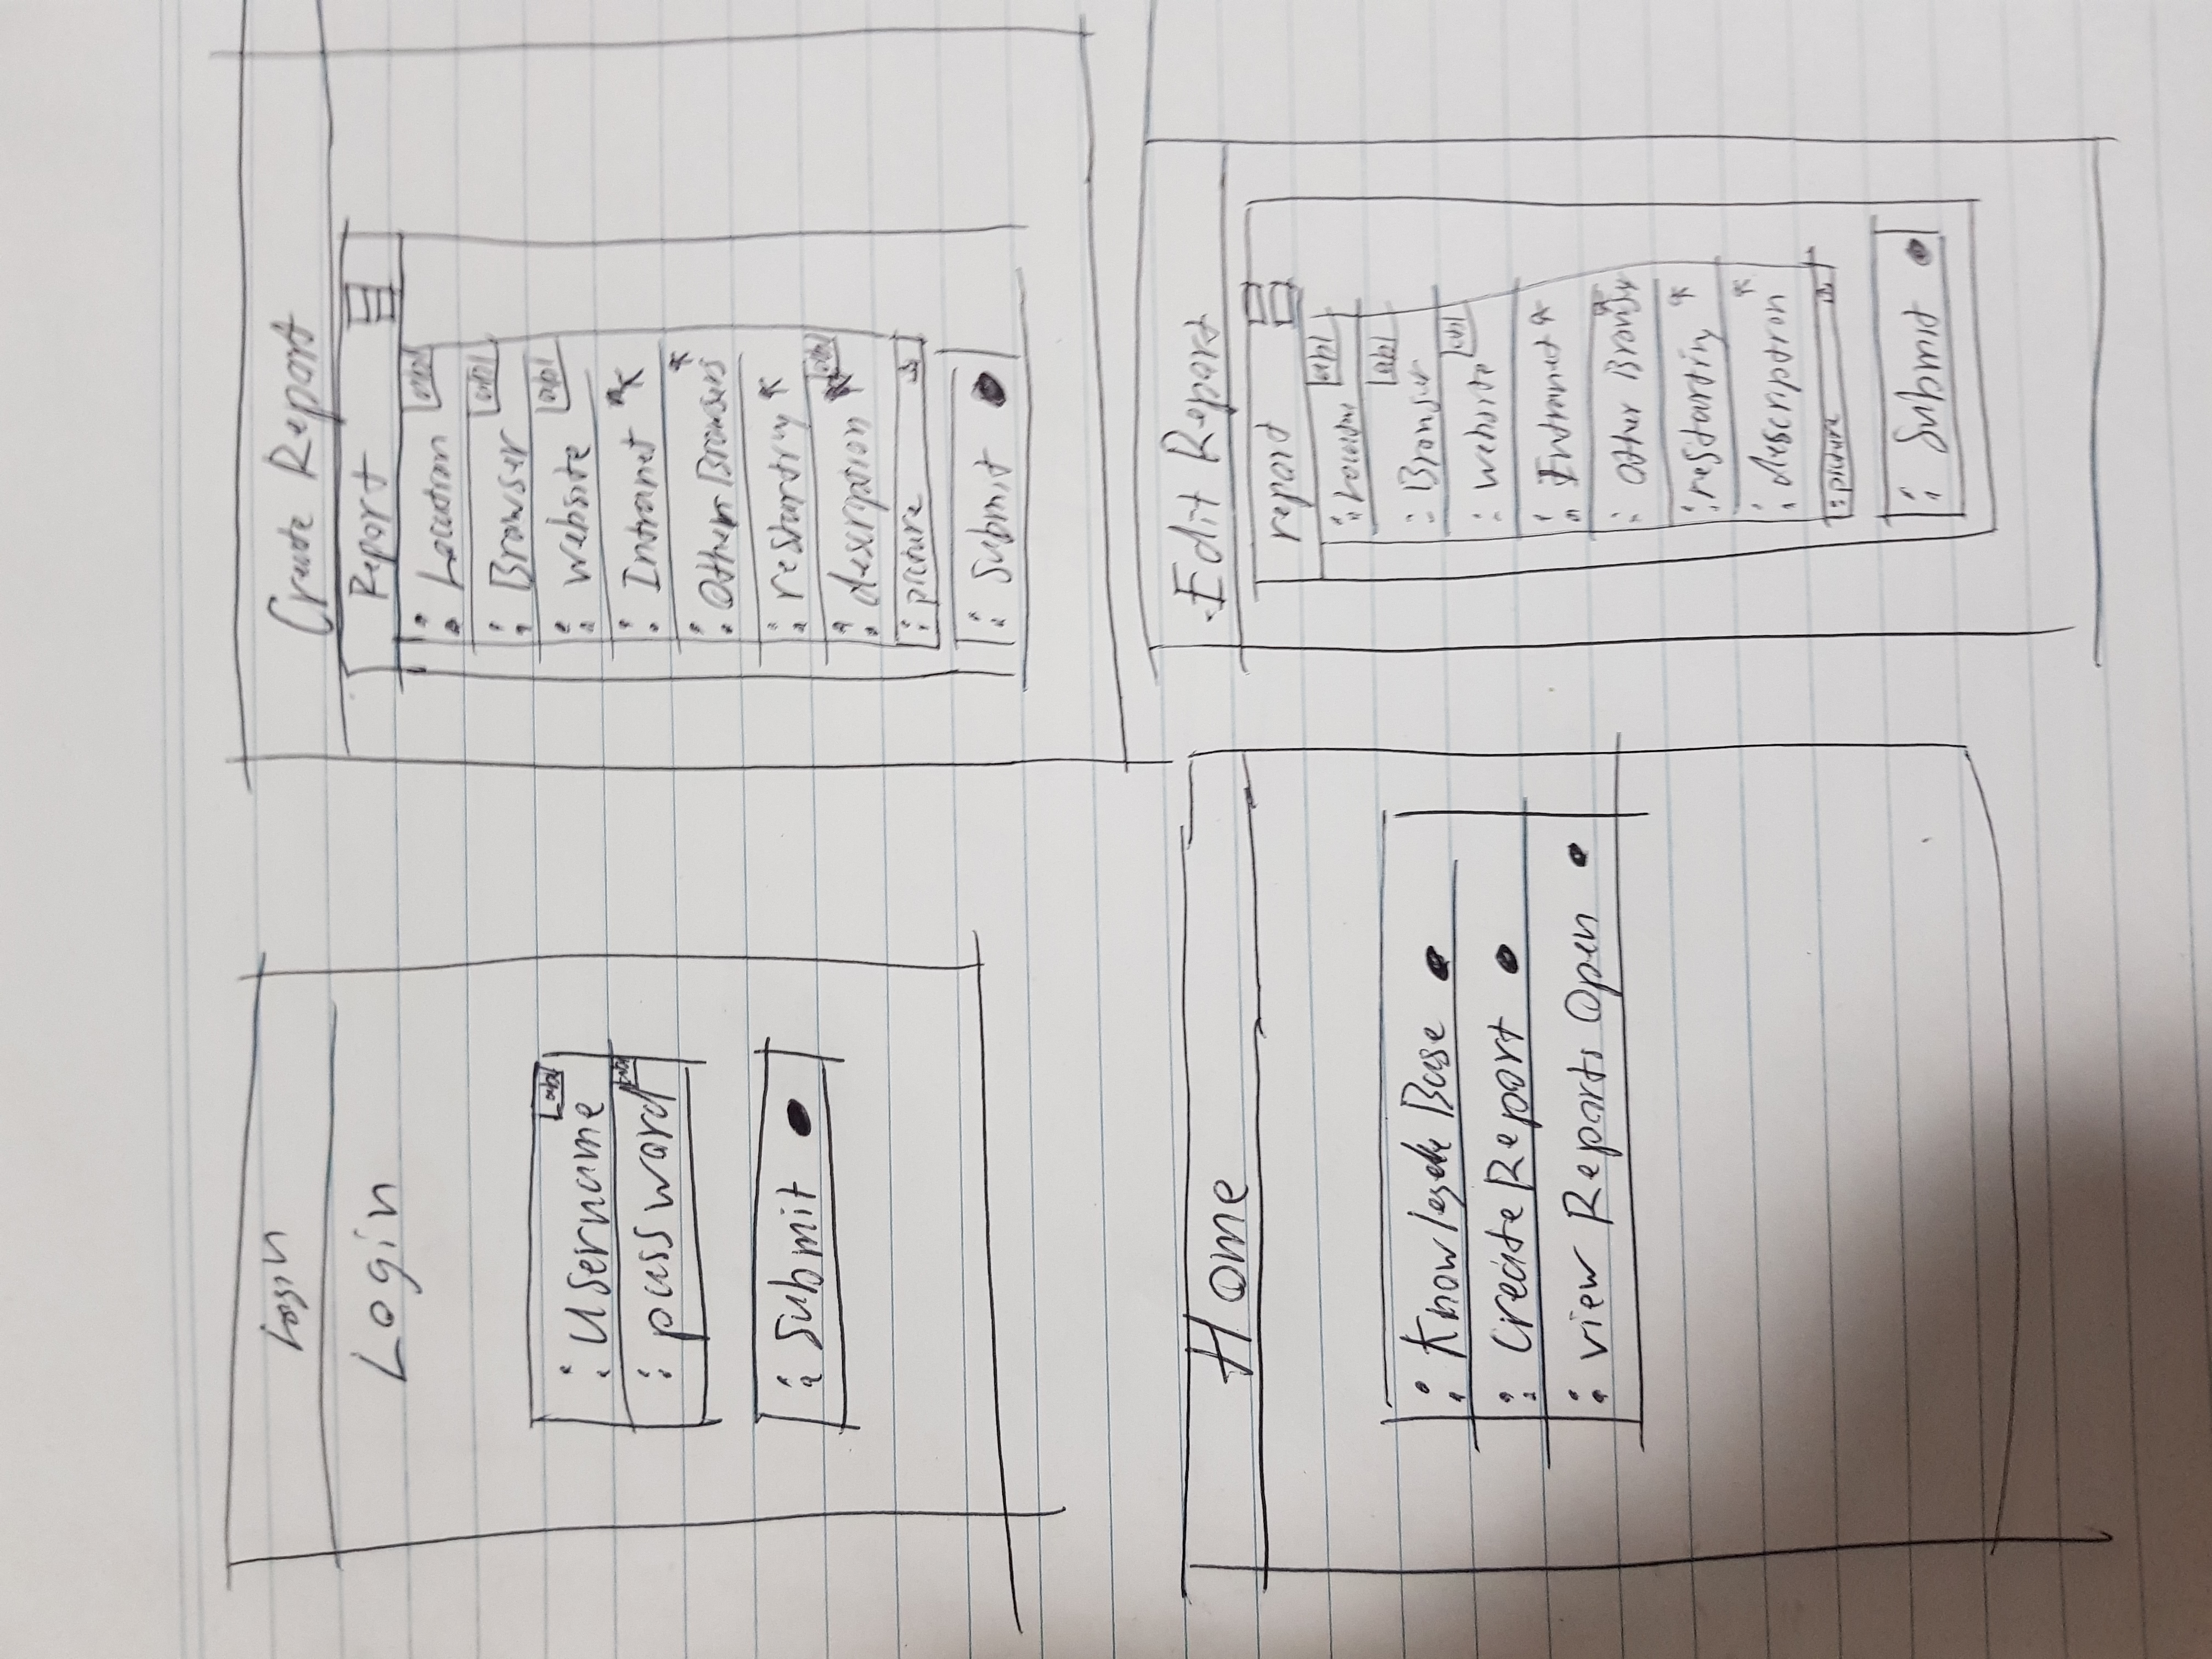 Login
Login
: Username abl
: password abl
: Submit
Create Report
Report
: Location abl
: Browser abl
: website abl
: Intranet
: Other Browsers
: restarting
: description abl
: picture
: Submit
Home
: Knowlegde Base
: Create Report
: view Reports Open
Edit Report
report
: Location abl
: Browser abl
: website abl
: Intranet
: Other Browser
: restarting
: description
: picture
: Submit